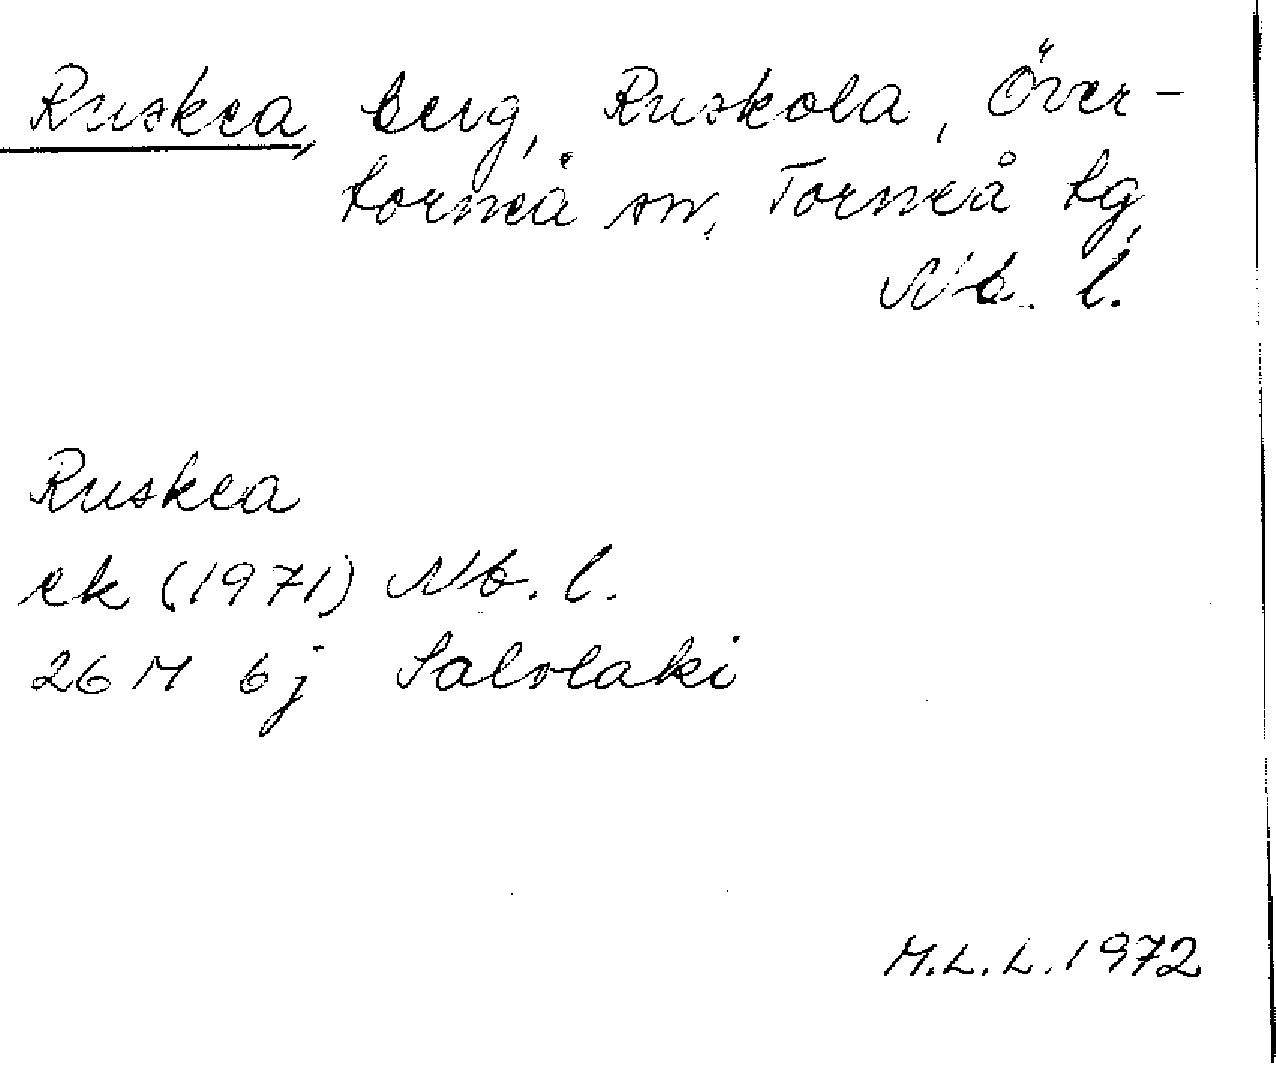 Ruskea, berg, Ruskola, Över-
torneå sn, Torneå tg,
Nb. l.
Ruskea
ek (1971) Nb. l.
26 M 6 j
M.L.L. 1972